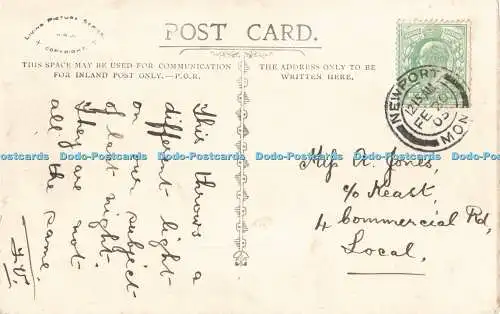 LIVING PICTURE SERIES
COPYRIGHT
POST CARD.
THIS SPACE MAY BE USED FOR COMMUNICATION
FOR INLAND POST ONLY.—P.G.R.
THE ADDRESS ONLY TO BE
WRITTEN HERE.
NEWPORT
MON
FE
This throws a
different light
on our subject
of last night.
They are not
all the same.
Miss A. Jones,
c/o Keast,
4 Commercial Rd,
Local.
Dodo-Postcards Dodo-Postcards Dodo-Postcards Dodo-Postcards Dodo-Postcards